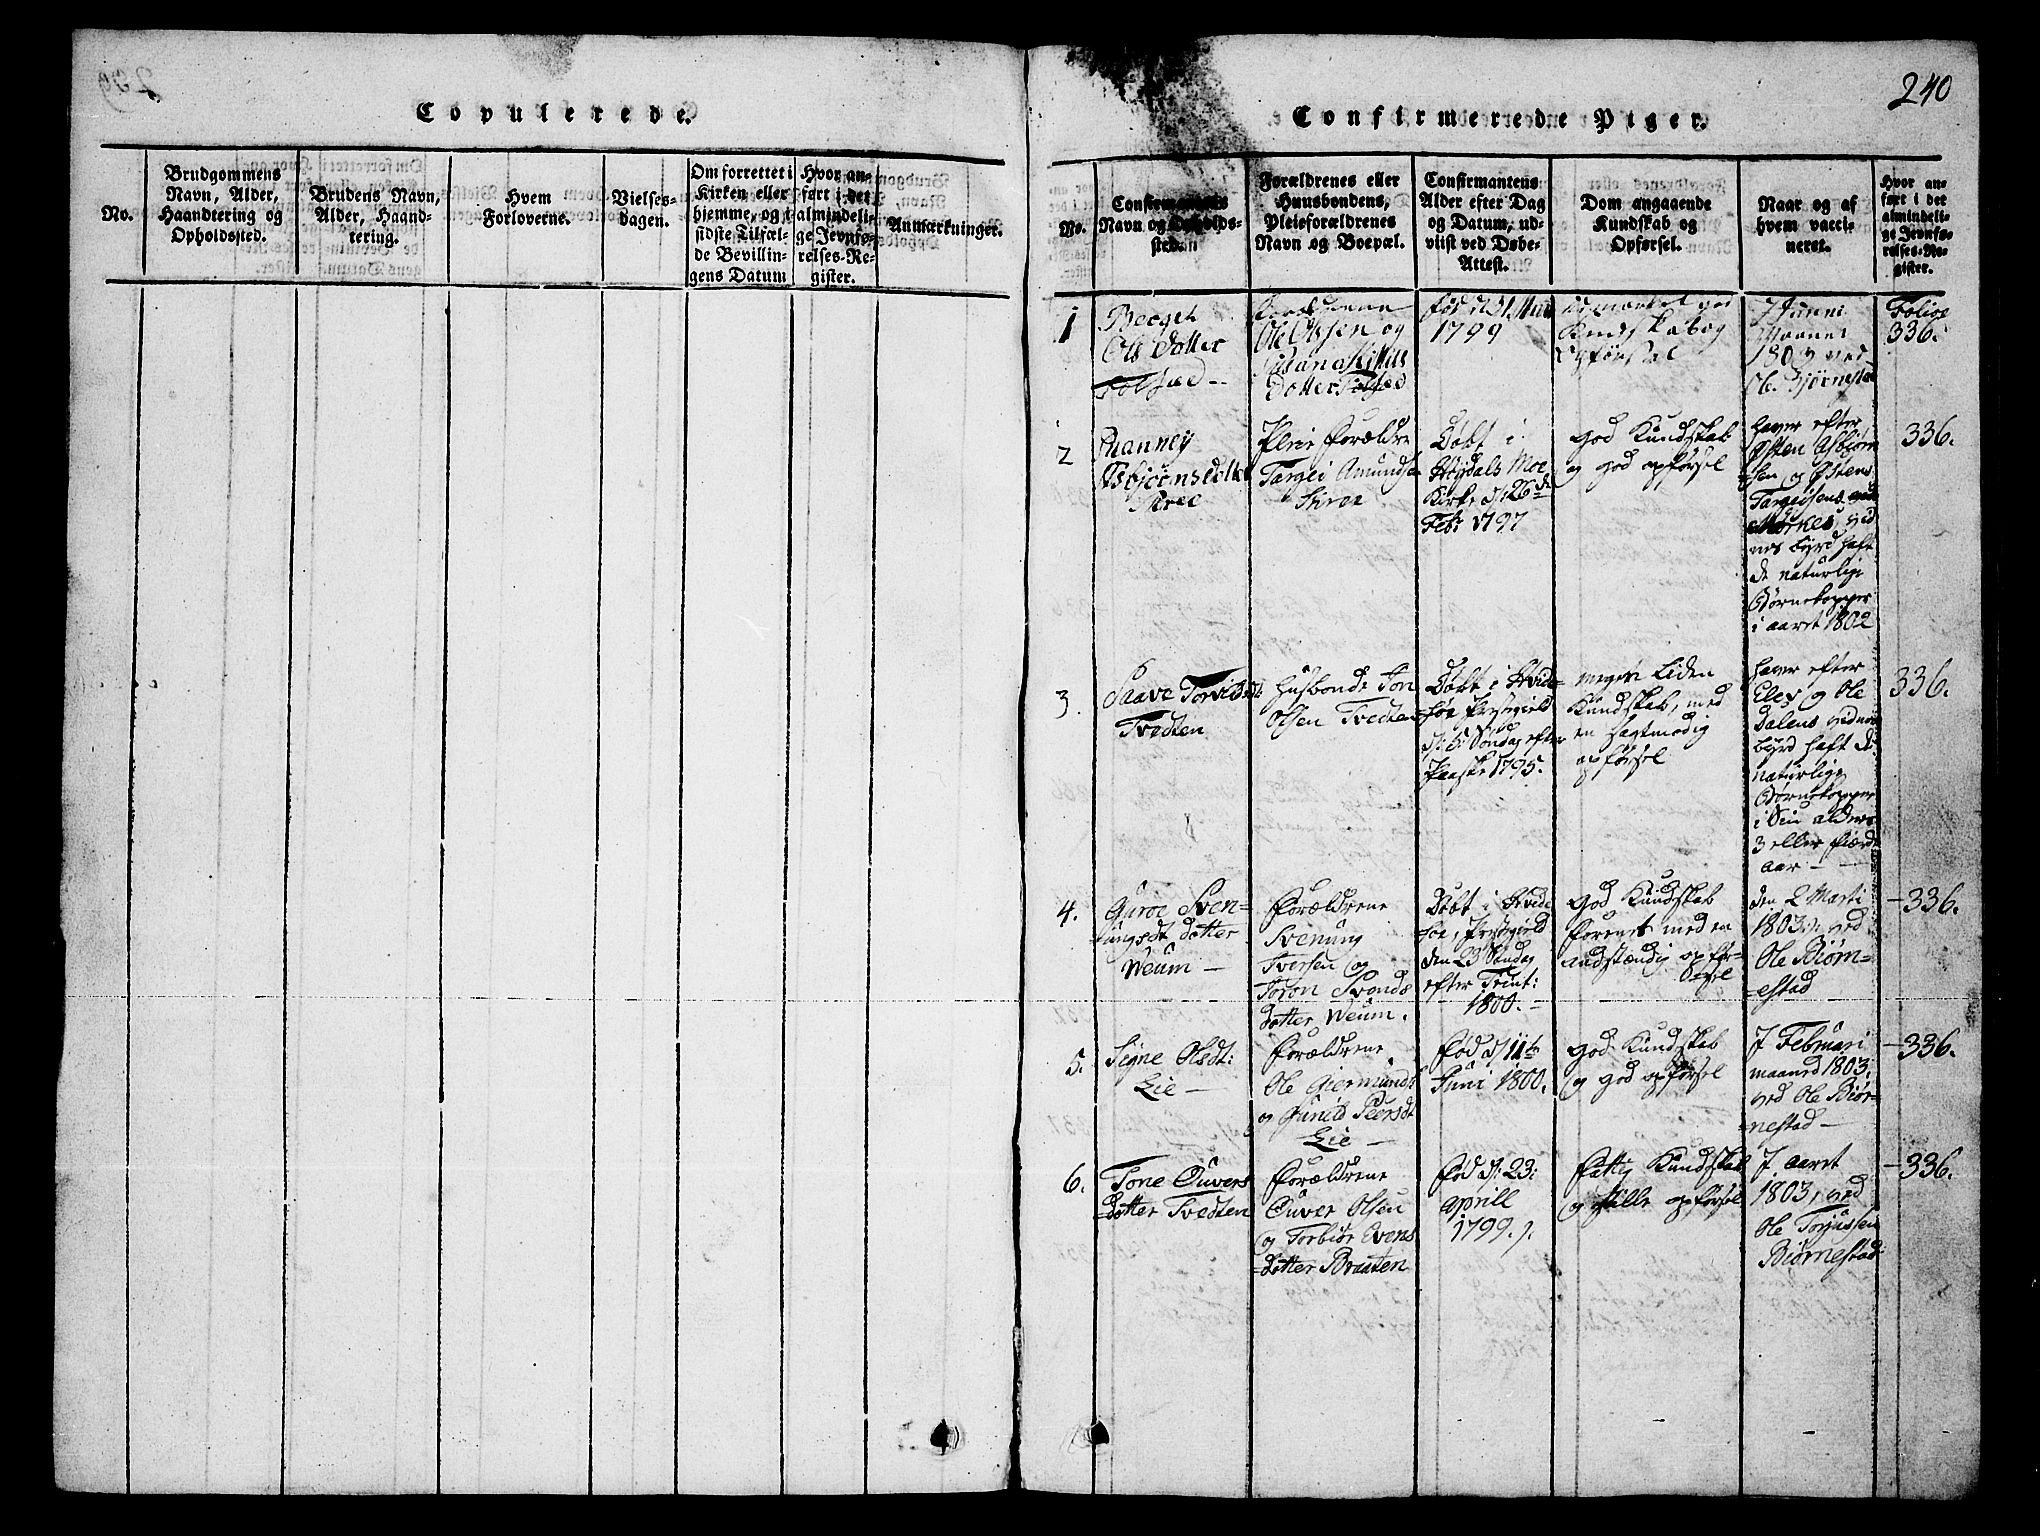 Copulerede.
No.
Brudgommens
Navn, Alder,
Haandtering og
Opholdssted.
Brudens Navn,
Alder, Haand-
tering.
Hvem
Forloverne.
Vielses-
dagen.
Om forrettet i
Kirken eller
hjemme, og i
sidste Tilfæl-
de Bevillin-
gens Datum
Hvor an-
ført i det
almindeli-
ge Jevnfø-
relses-Re-
gister.
Anmærkninger.
240
Confirmerede Piger.
No.
Confirmantens
Navn og Opholds-
sted.
Forældrenes eller
Huusbondens,
Pleieforældrenes
Navn og Boepæl.
Confirmantens
Alder efter Dag
og Datum, ud-
viist ved Døbe-
Attest.
Dom angaaende
Kundskab og
Opførsel.
Naar og af
hvem vacci-
neret.
Hvor an-
ført i det
almindeli-
ge Jevnfø-
relses-Re-
gister.
1
Berget
Ols Dotter
Forældrene
Ole Olsen og
Dotter
født d
1799
god
Kundskab og
Opførsel
J Junni
Maanet
ved
Ole Bjørnestad
Folioe
336.
2
Asbjørnsdotter
Pleie Forældre
Targei Amundse
Døbt i
Høydals Moe
Kirke d: 26de
Febr 1797
god Kundskab
og god opførsel
haver efter
Østen Asbjørn
sen og Østens
Targeisens
vid
nes byrd haft
de naturlige
Børnekopper
i aaret 1802
336.
3.
Saave
Tvedten
Husbonde Jon
Olsen Tvedten
Døbt i Hvide-
søe Præsgield
d: 5 Søndag efter
Paaske 1795.
megen liden
Kundskab, med
en sagtmodig
opførsel
haver efter
og Ole
Dalens vidnes
byrd haft de
naturlige
Børnekopper
i Sin alders
3 eller fierde
aar —
336.
4.
Guroe Sven=
ungsdt dotter
Weum —
Forældrene
Svenung
Iversen og
Toron
dotter Weum.
Døbt i Hvide
søe, Præsgield
den 23 Søndag
efter Trint:
1800. —
god Kundskab
forenet med en
anstændig opfør=
sel
den 2 Marti
1803 ved
Ole Biørn=
estad
—336.
5.
Signe Olsdt:
Lie —
Forældrene
Ole Giermunds
og Gunild Peersdt
Lie —
Fød d 11te
Juni 1800.
god Kundskab
og god opførsel
J Februari
maaned 1803
ved Ole Biør=
nestad —
—336.
6.
Tone Ouvers
dotter Tvedten
Forældrene
Ouver Olsen
og Torbiør Evens
dotter Braaten
Fød d: 23:
Aprill
1799.
fattig Kundskab
og stille opførsel
J aaret
1803, ved
Ole Torjussen
Biørnestad
—336.